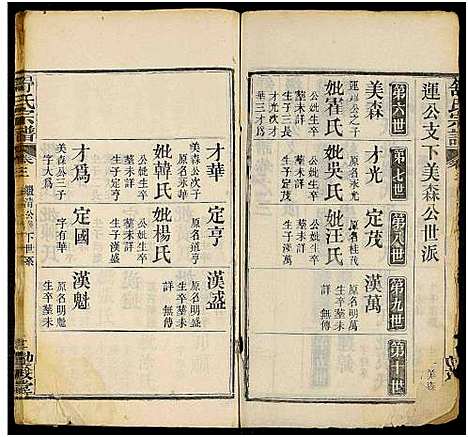 運公支下美森公世派
第六世
第七世
第八世
第九世
第十世
美森
運公之子
妣崔氏
公妣生卒
葬未詳
生子三長
才光次才
華三才為
才光
原名永光
妣吳氏
公妣生卒
葬未詳
生子定茂
定茂
原名桂茂
妣汪氏
公妣生卒
葬未詳
生子漢萬
漢萬
原名明萬
生卒葬未
詳無傳
才華
美森公次子
原名永華
妣韓氏
公妣生卒
葬未詳
生子定亨
定亨
原名道亨
妣楊氏
公妣生卒
葬未詳
生子漢盛
漢盛
原名明盛
生卒葬未
詳無傳
才為
美森公三子
字大為
定國
字有華
漢魁
原名明魁
生卒葬未
舒氏宗譜
卷三
下世系